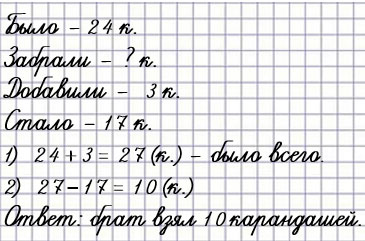 Было – 24 к.
Забрали – ? к.
Добавили – 3 к.
Стало – 17 к.
1) 24 + 3 = 27 (к.) – было всего.
2) 27 – 17 = 10 (к.)
Ответ: брат взял 10 карандашей.